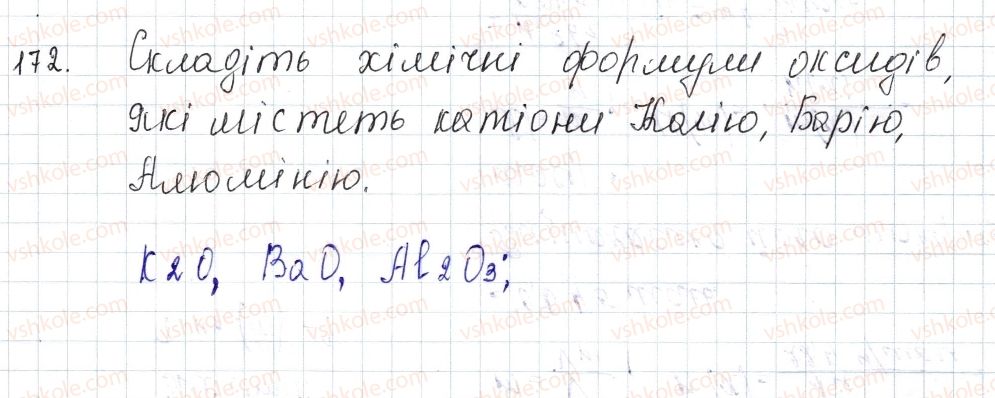 172. Складіть хімічні формули оксидів,
які містеть катіони Калію, Барію,
Алюмінію.
K2O, BaO, Al2O3;